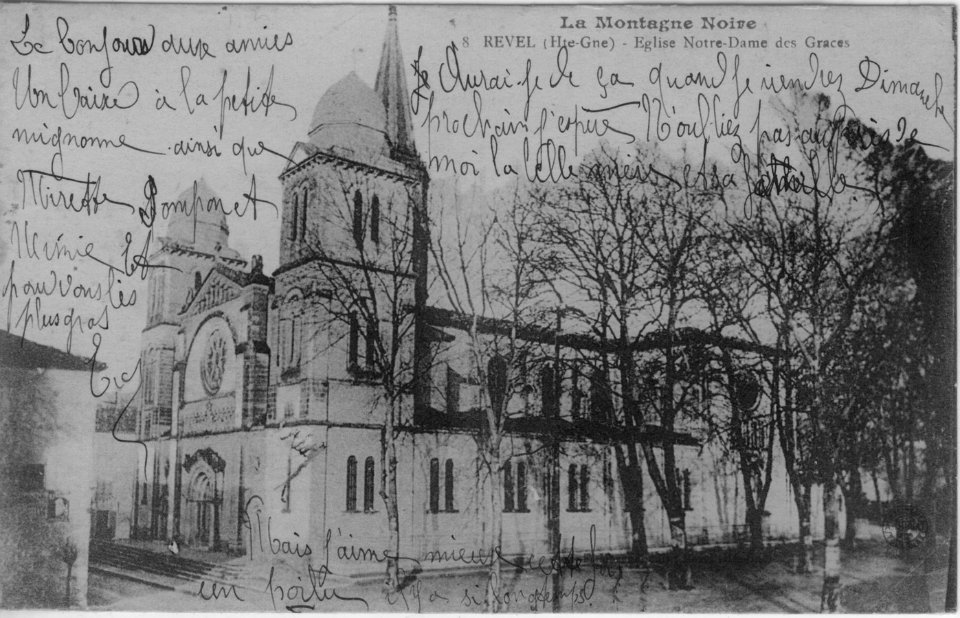 La Montagne Noire
8 REVEL (Hte-Gne) - Eglise Notre-Dame des Graces
Le bonjour d'une amies
Un baire à la petite
mignonne ainsi que
Mirette Pomponet
Mimie Et
pour vous les
plus gras
Etc
Je durai-je de ça quand je viendrez Dimanche
prochain j'espère N'oubliez pas
moi la belle
Mais j'aime mieux
un poilu il y a si longtemps!